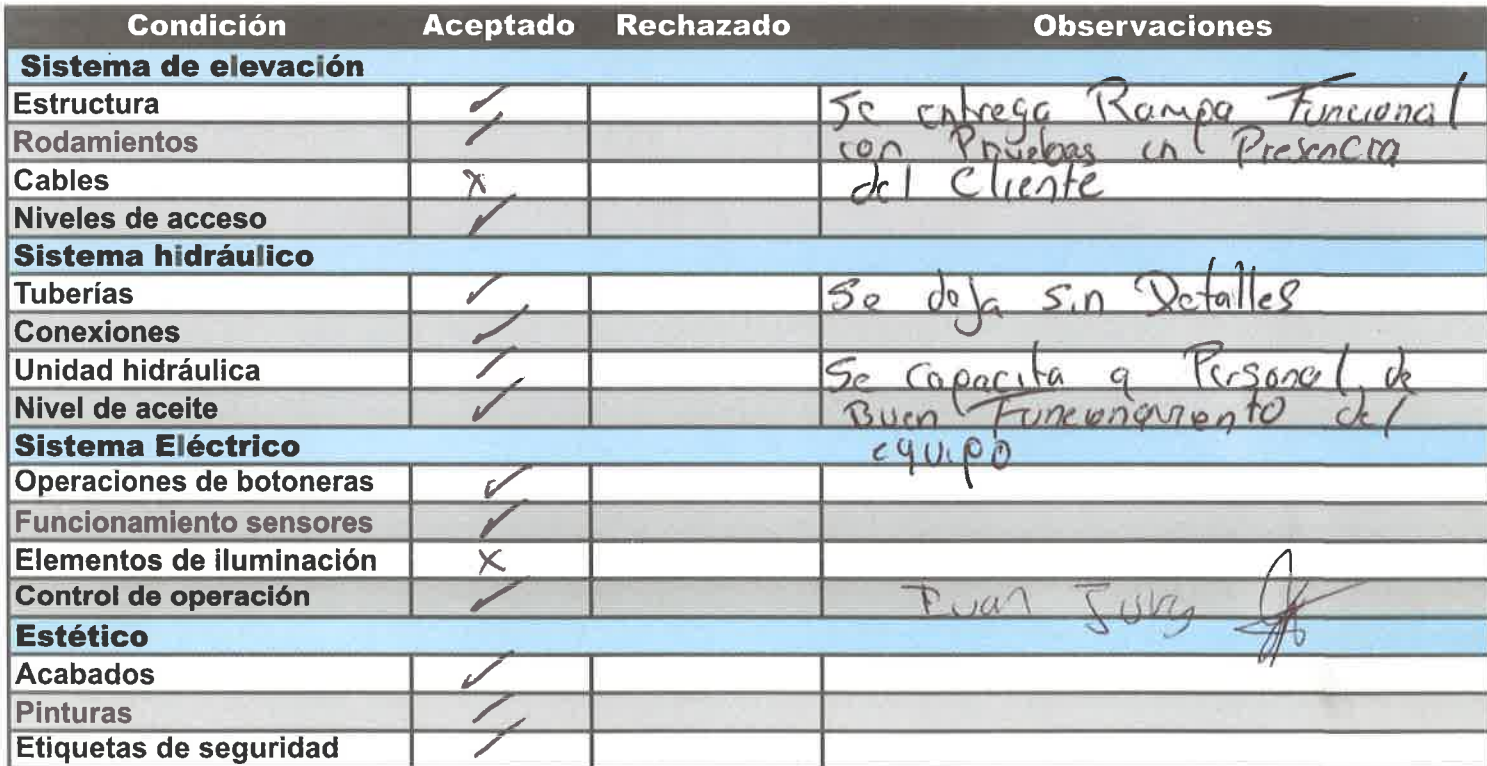 Condición Aceptado Rechazado Observaciones
Sistema de elevación
Estructura ✓ Se entrega Rampa Funcional
Rodamientos ✓ con Pruebas en Presencia
Cables x del Cliente
Niveles de acceso ✓
Sistema hidráulico
Tuberías ✓ Se deja sin Detalles
Conexiones ✓
Unidad hidráulica ✓ Se Capacita a Personal de
Nivel de aceite ✓ Buen Funcionamiento del
Sistema Eléctrico equipo
Operaciones de botoneras ✓
Funcionamiento sensores ✓
Elementos de iluminación x
Control de operación ✓
Estético
Acabados ✓
Pinturas ✓
Etiquetas de seguridad ✓